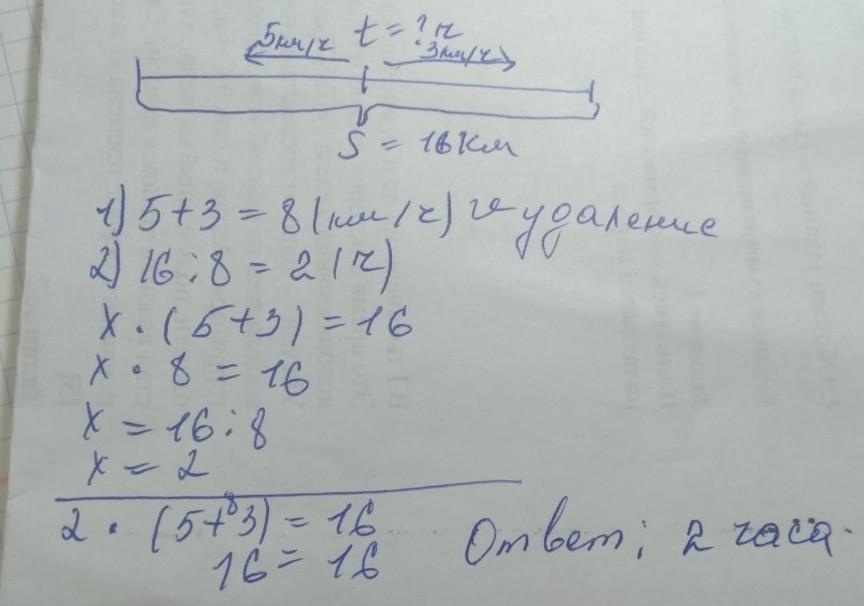 t = ? ч
5км/ч 3км/ч
S = 16 км
1) 5+3 = 8 (км/ч) v удаление
2) 16 : 8 = 2 (ч)
x · (5+3) = 16
x · 8 = 16
x = 16 : 8
x = 2
8
2 · (5+3) = 16
16 = 16
Ответ: 2 часа.